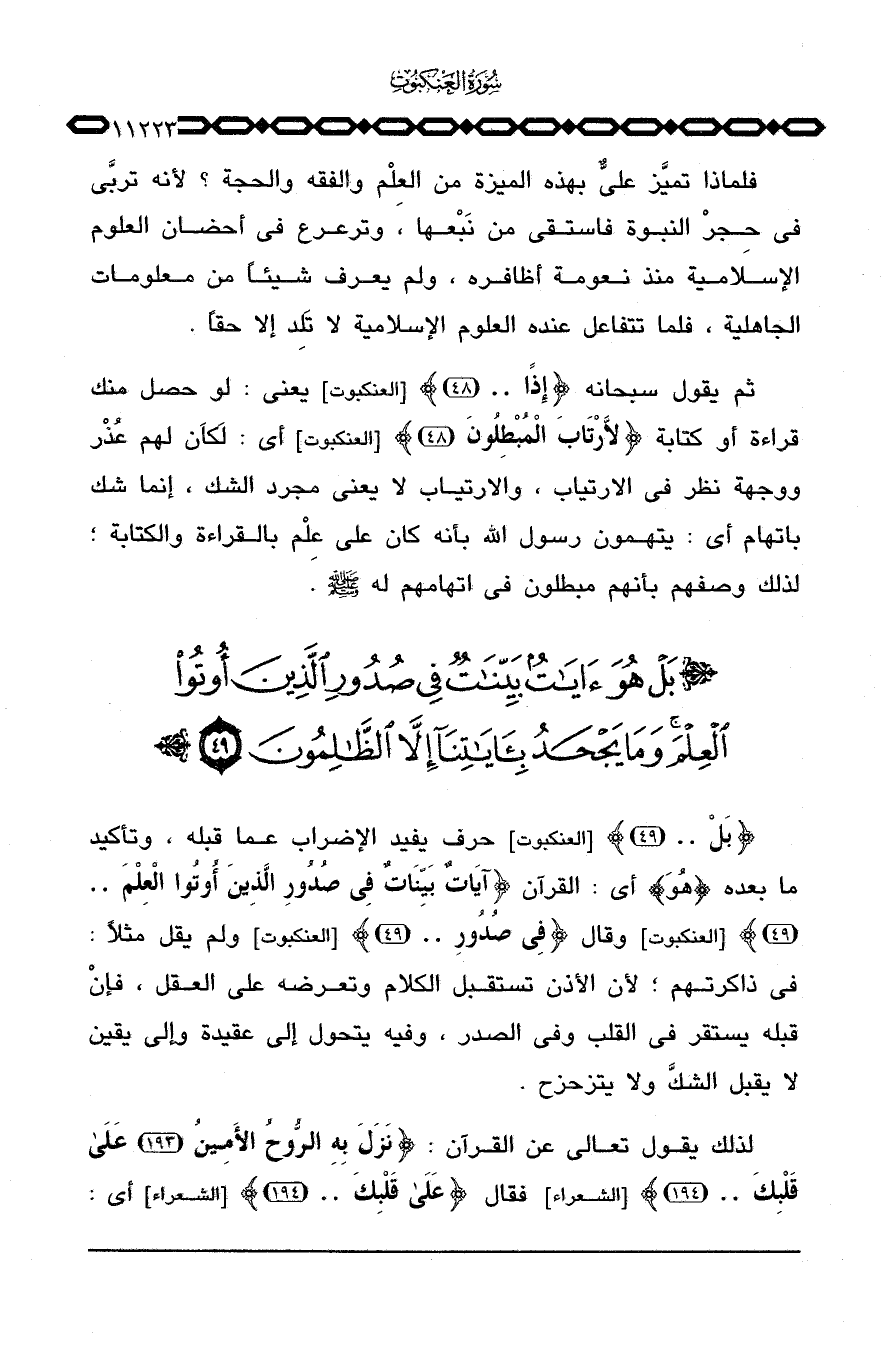 سُورَةُ العَنْكَبُوتِ
١١٢٢٣
فلماذا تميَّز علىٌّ بهذه الميزة من العلْم والفقه والحجة ؟ لأنه تربَّى
فى حِجرْ النبوة فاستقى من نَبْعها ، وترعرع فى أحضان العلوم
الإسلامية منذ نعومة أظافره ، ولم يعرف شيئاً من معلومات
الجاهلية ، فلما تتفاعل عنده العلوم الإسلامية لا تَلِد إلا حقاً .
ثم يقول سبحانه ﴿إِذًا .. (٤٨)﴾ [العنكبوت] يعنى : لو حصل منك
قراءة أو كتابة ﴿لاَّرْتَابَ الْمُبْطِلُونَ (٤٨)﴾ [العنكبوت] أى : لَكاَن لهم عُذْر
ووجهة نظر فى الارتياب ، والارتياب لا يعنى مجرد الشك ، إنما شك
باتهام أى : يتهمون رسول الله بأنه كان على علْم بالقراءة والكتابة ؛
لذلك وصفهم بأنهم مبطلون فى اتهامهم له ﷺ .
﴿بَلْ هُوَ ءَايَٰتٌۢ بَيِّنَٰتٌ فِى صُدُورِ ٱلَّذِينَ أُوتُوا۟
ٱلْعِلْمَ ۚ وَمَا يَجْحَدُ بِـَٔايَٰتِنَآ إِلَّا ٱلظَّٰلِمُونَ ٤٩﴾
﴿بَلْ .. (٤٩)﴾ [العنكبوت] حرف يفيد الإضراب عما قبله ، وتأكيد
ما بعده ﴿هُوَ﴾ أى : القرآن ﴿آيَاتٌ بَيِّنَاتٌ فِى صُدُورِ الَّذِينَ أُوتُوا الْعِلْمَ ..
(٤٩)﴾ [العنكبوت] وقال ﴿فِى صُدُورِ .. (٤٩)﴾ [العنكبوت] ولم يقل مثلاً :
فى ذاكرتهم ؛ لأن الأذن تستقبل الكلام وتعرضه على العقل ، فإنْ
قبله يستقر فى القلب وفى الصدر ، وفيه يتحول إلى عقيدة وإلى يقين
لا يقبل الشكَّ ولا يتزحزح .
لذلك يقول تعالى عن القرآن : ﴿نَزَلَ بِهِ الرُّوحُ الأَمِينُ (١٩٣) عَلَىٰ
قَلْبِكَ .. (١٩٤)﴾ [الشعراء] فقال ﴿عَلَىٰ قَلْبِكَ .. (١٩٤)﴾ [الشعراء] أى :